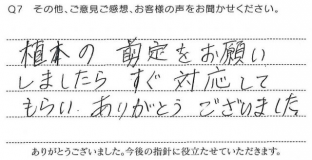 Q7 その他、ご意見ご感想、お客様の声をお聞かせください。
植木の剪定をお願い
しましたら すぐ対応して
もらい. ありがとう ございました
ありがとうございました。今後の指針に役立たせていただきます。